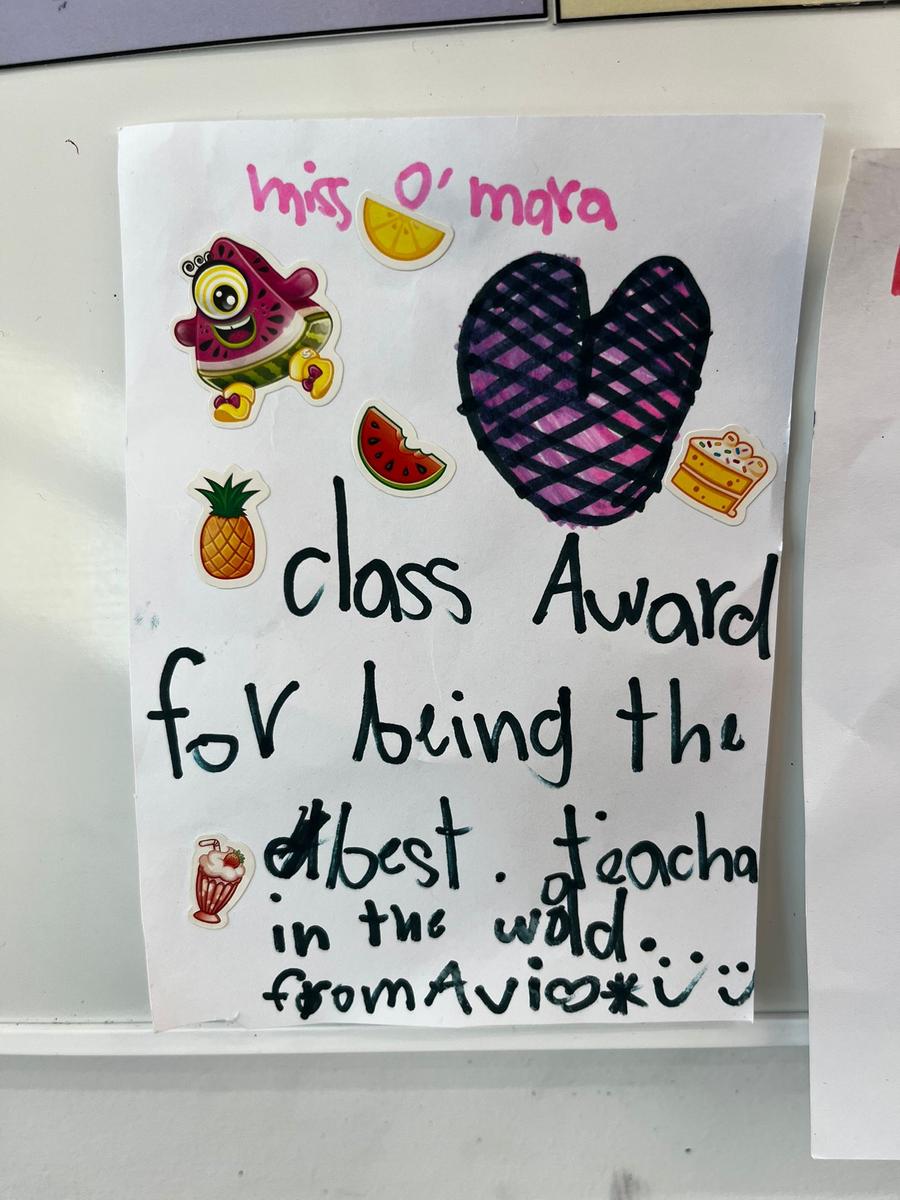 miss O' mara
class Award
for being the
best. teacha
in the wold.
from Avi♡*